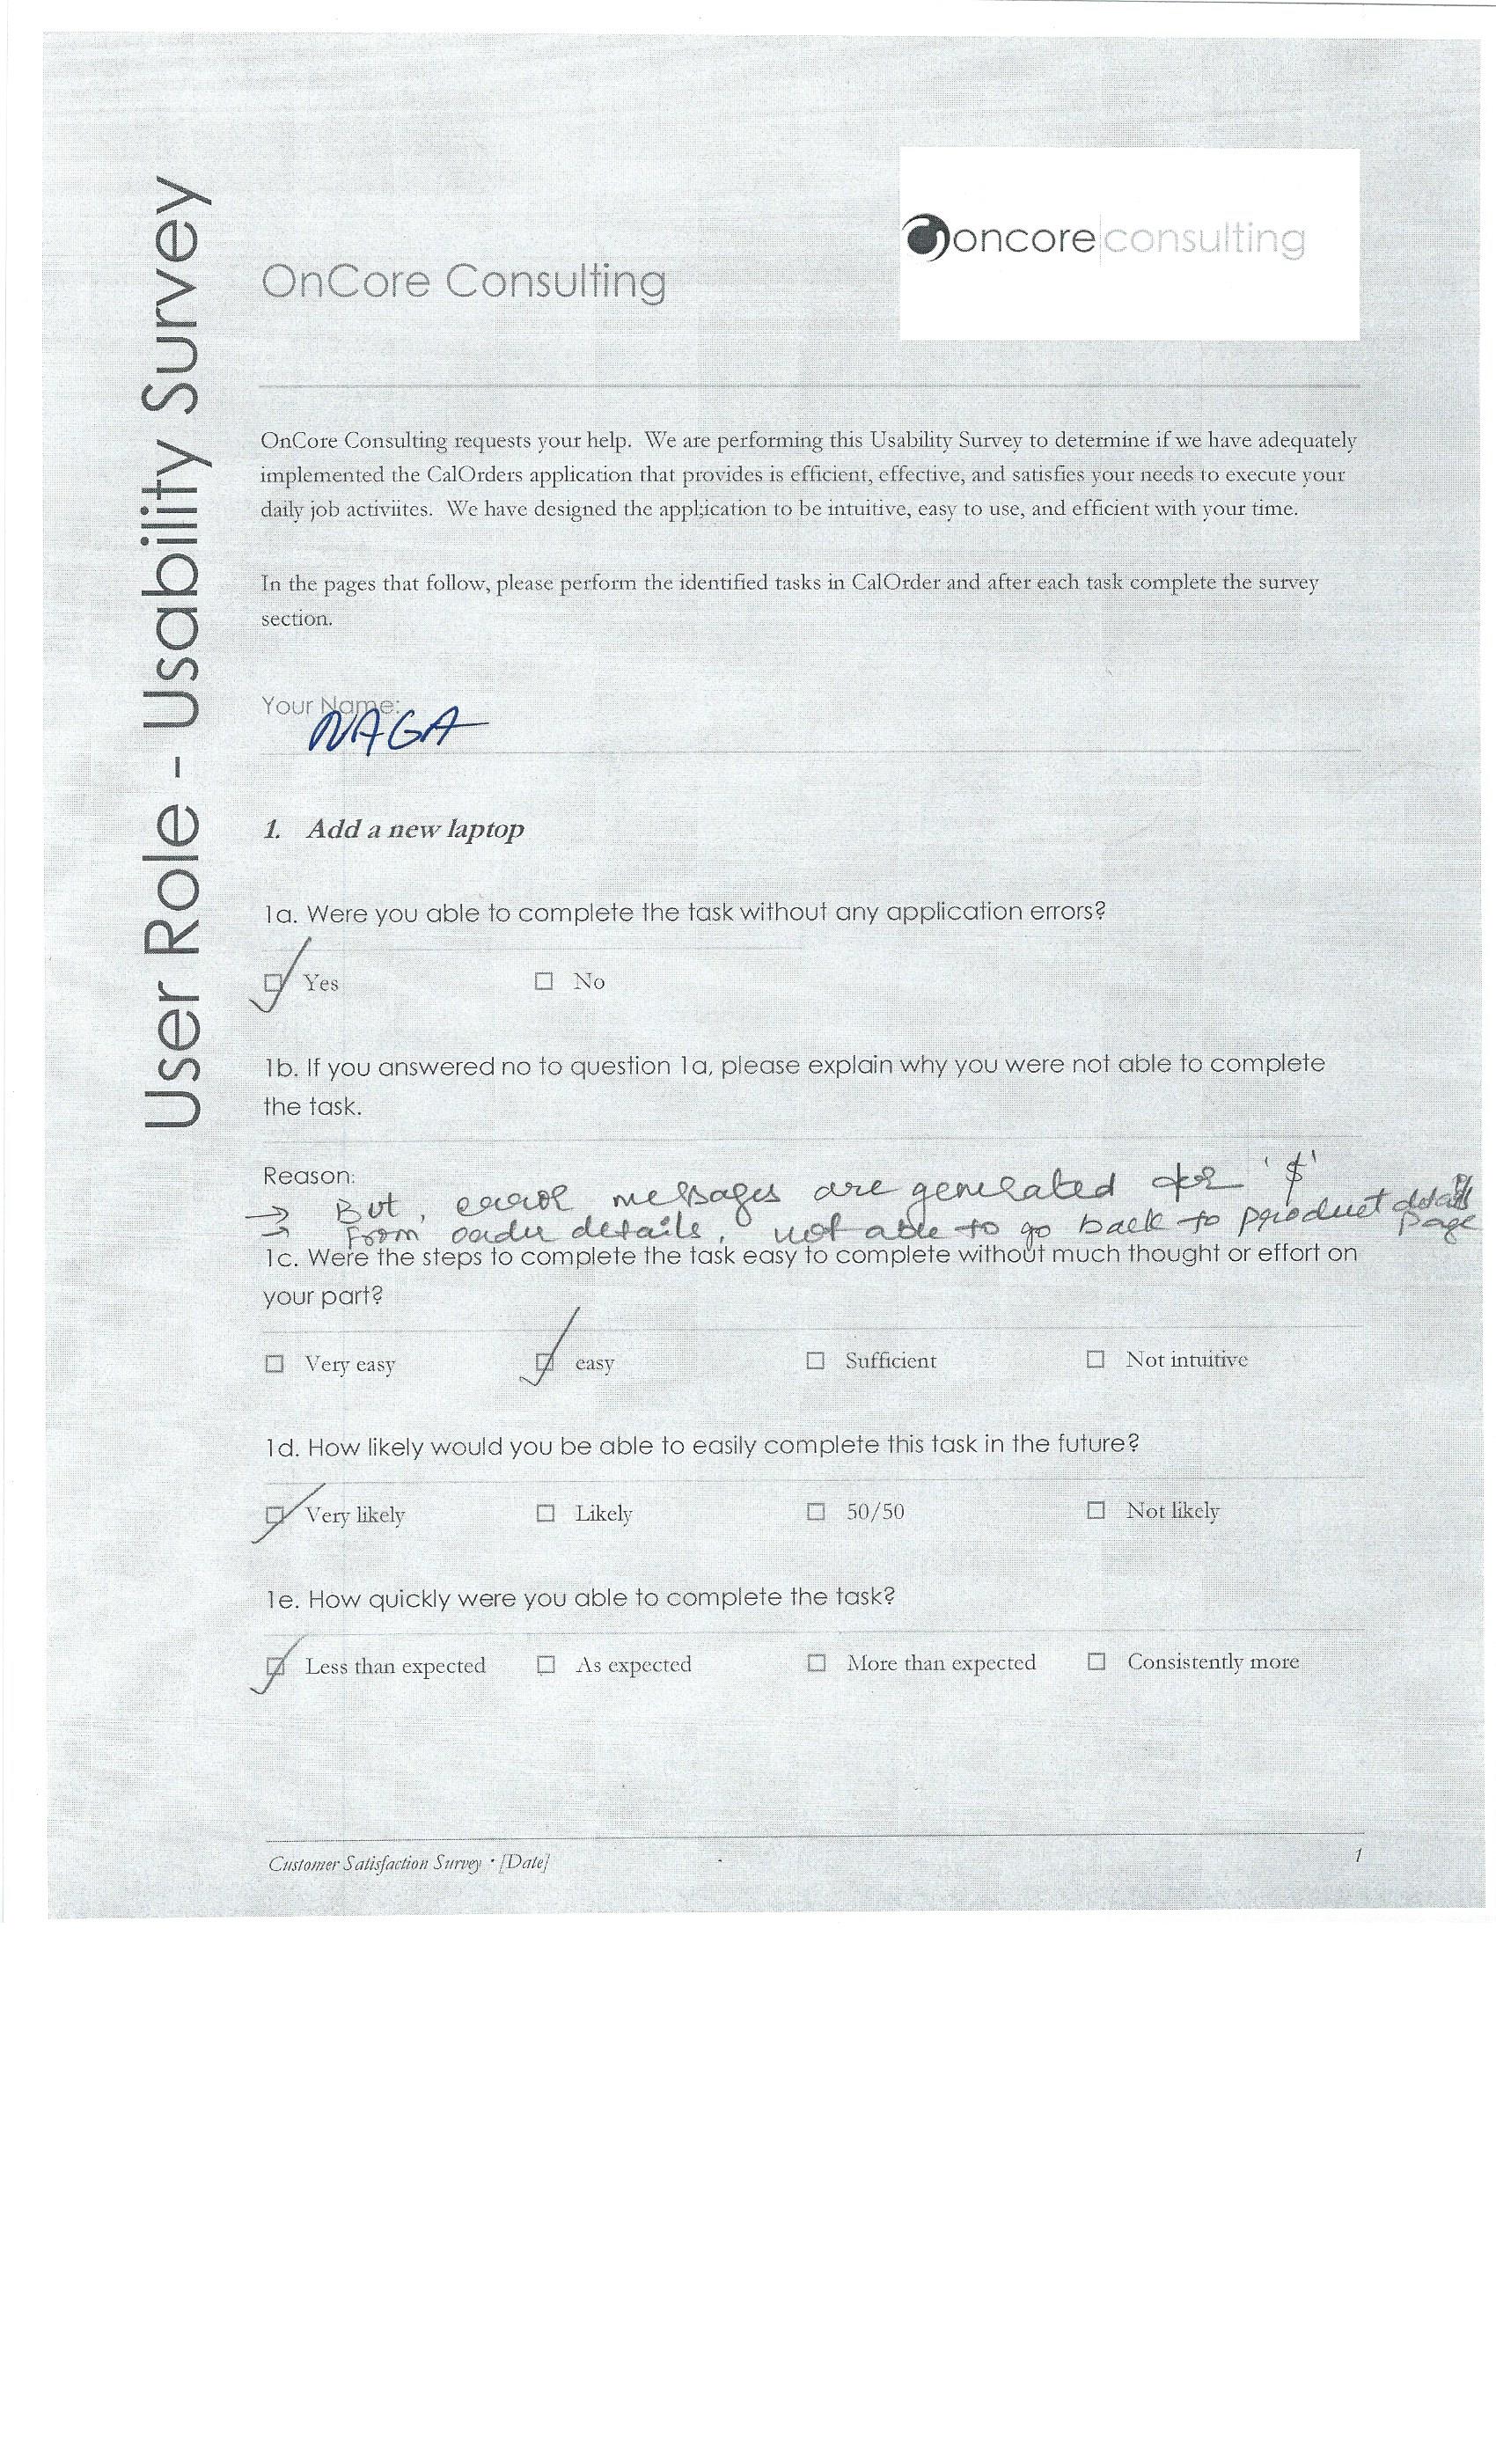 User Role - Usability Survey
oncore consulting
OnCore Consulting
OnCore Consulting requests your help. We are performing this Usability Survey to determine if we have adequately
implemented the CalOrders application that provides is efficient, effective, and satisfies your needs to execute your
daily job activiites. We have designed the application to be intuitive, easy to use, and efficient with your time.
In the pages that follow, please perform the identified tasks in CalOrder and after each task complete the survey
section.
Your Name:
NAGA
1. Add a new laptop
1a. Were you able to complete the task without any application errors?
Yes No
1b. If you answered no to question 1a, please explain why you were not able to complete
the task.
Reason:
→ But, error messages are generated for '$'
→ From order details, not able to go back to product details
page
1c. Were the steps to complete the task easy to complete without much thought or effort on
your part?
Very easy easy Sufficient Not intuitive
1d. How likely would you be able to easily complete this task in the future?
Very likely Likely 50/50 Not likely
1e. How quickly were you able to complete the task?
Less than expected As expected More than expected Consistently more
Customer Satisfaction Survey · [Date] 1